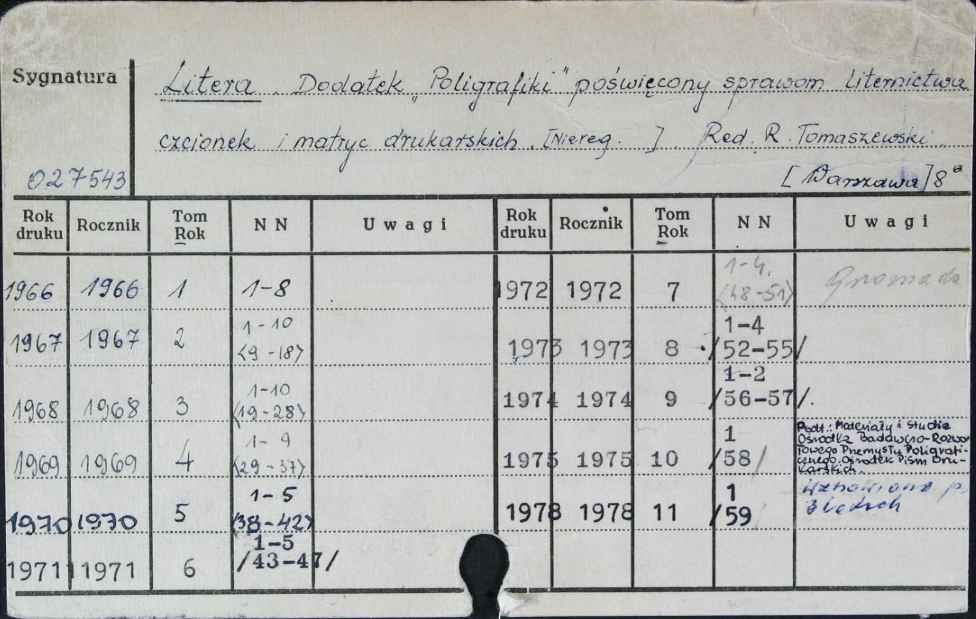 Sygnatura
027543
Litera. Dodatek "Poligrafiki" poświęcony sprawom liternictwa
czcionek i matryc drukarskich. [Niereg. ] Red. R. Tomaszewski.
[Warszawa] 8°
Rok druku Rocznik Tom Rok NN Uwagi Rok druku Rocznik Tom Rok NN Uwagi
1966 1966 1 1-8
1967 1967 2 1-10 (9-18)
1968 1968 3 1-10 (19-28)
1969 1969 4 1-9 (29-37)
1970 1970 5 1-5 (38-42)
1971 1971 6 1-5 /43-47/
1972 1972 7 1-4. (48-51)
1973 1973 8 1-4 /52-55/
1974 1974 9 1-2 /56-57/.
1975 1975 10 1 /58/ Podt.: Materiały i Studia
Ośrodka Badawczo-Rozwo-
jowego Przemysłu Poligrafi-
cznego. Ośrodek Pism Dru-
karskich
1978 1978 11 1 /59/ Wznowione p.